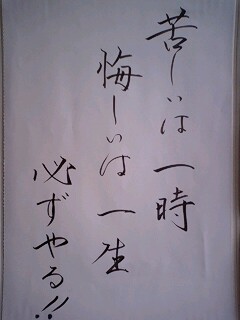 苦しいは一時
悔しいは一生
必ずやる!!